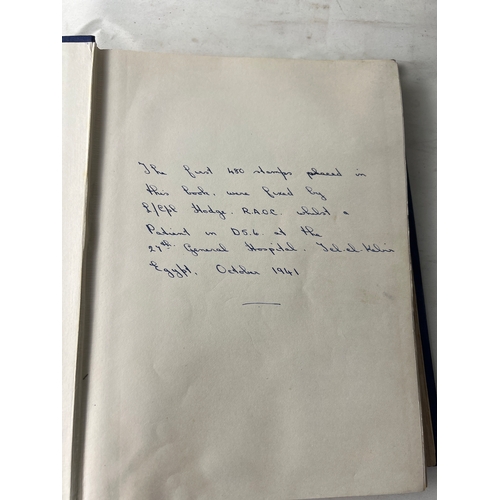 The first 480 stamps placed in
this book, were fixed by
L/Cpl Hodge. R.A.O.C. whilst a
Patient in D5.6. at the
27th General Hospital. Tel-el-Kebir
Egypt. October 1941